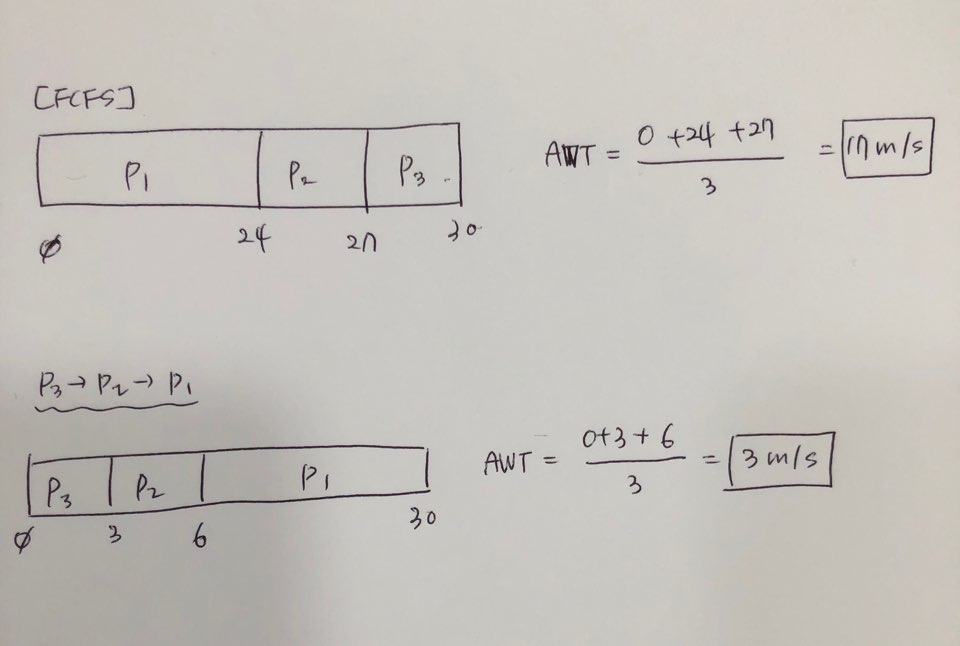 [FCFS]
P1 P2 P3
0 24 27 30
AWT = 0 + 24 + 27 / 3 = 17 m/s
P3 → P2 → P1
P3 P2 P1
0 3 6 30
AWT = 0 + 3 + 6 / 3 = 3 m/s